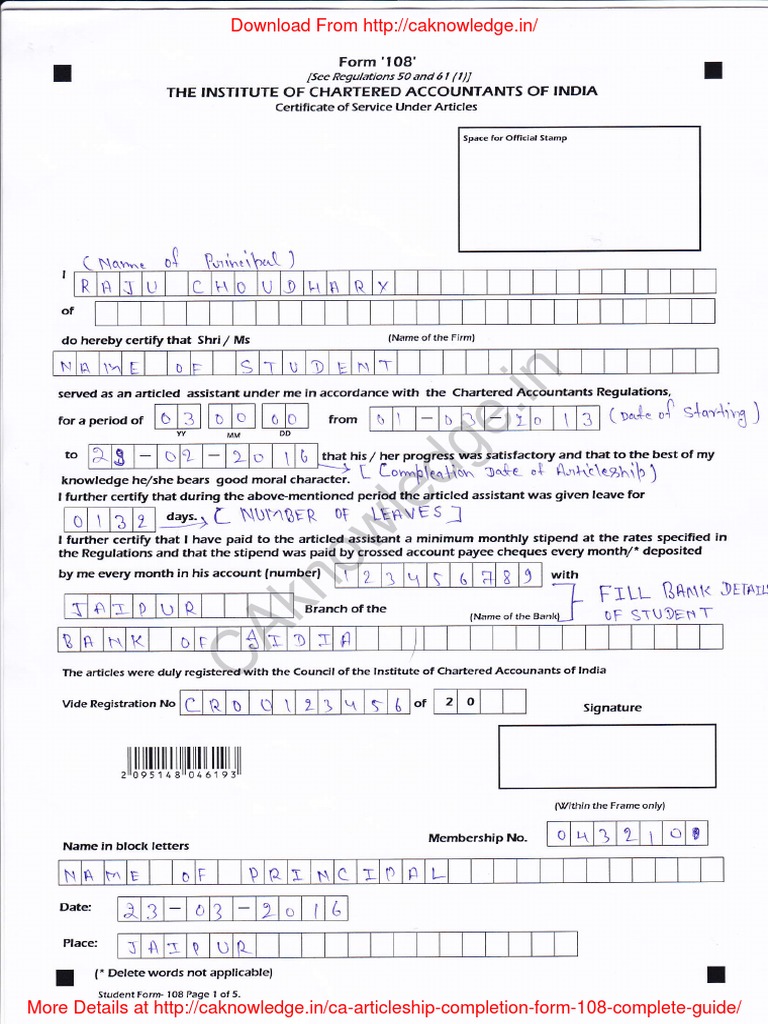 Download From http://caknowledge.in/
Form '108'
[See Regulations 50 and 61 (1)]
THE INSTITUTE OF CHARTERED ACCOUNTANTS OF INDIA
Certificate of Service Under Articles
Space for Official Stamp
(Name of Principal)
I
RAJU CHOUDHARY
of
do hereby certify that Shri / Ms (Name of the Firm)
NAME OF STUDENT
served as an articled assistant under me in accordance with the Chartered Accountants Regulations,
for a period of 03 00 00 from 01-03-2013 (Date of Starting)
YY MM DD
to 29-02-2016 that his / her progress was satisfactory and that to the best of my
knowledge he/she bears good moral character. [Compleation Date of Articleship)
I further certify that during the above-mentioned period the articled assistant was given leave for
0132 days. [NUMBER OF LEAVES]
I further certify that I have paid to the articled assistant a minimum monthly stipend at the rates specified in
the Regulations and that the stipend was paid by crossed account payee cheques every month/* deposited
by me every month in his account (number) 123456789 with
JAIPUR Branch of the (Name of the Bank) FILL BANK DETAILS
OF STUDENT
BANK OF
The articles were duly registered with the Council of the Institute of Chartered Accountants of India
Vide Registration No CRO0123456 of 20 Signature
2095148 046193
(Within the Frame only)
Membership No. 043210
Name in block letters
NAME OF PRINCIPAL
Date: 23-03-2016
Place: JAIPUR
(* Delete words not applicable)
Student Form- 108 Page 1 of 5.
More Details at http://caknowledge.in/ca-articleship-completion-form-108-complete-guide/
CAknowledge.in